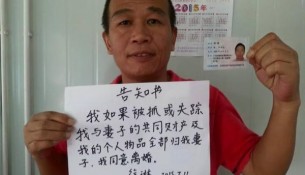 2015年
告知书
我如果被抓或失踪
我与妻子的共同财产及
我的个人物品全部归我妻
子,我同意离婚。